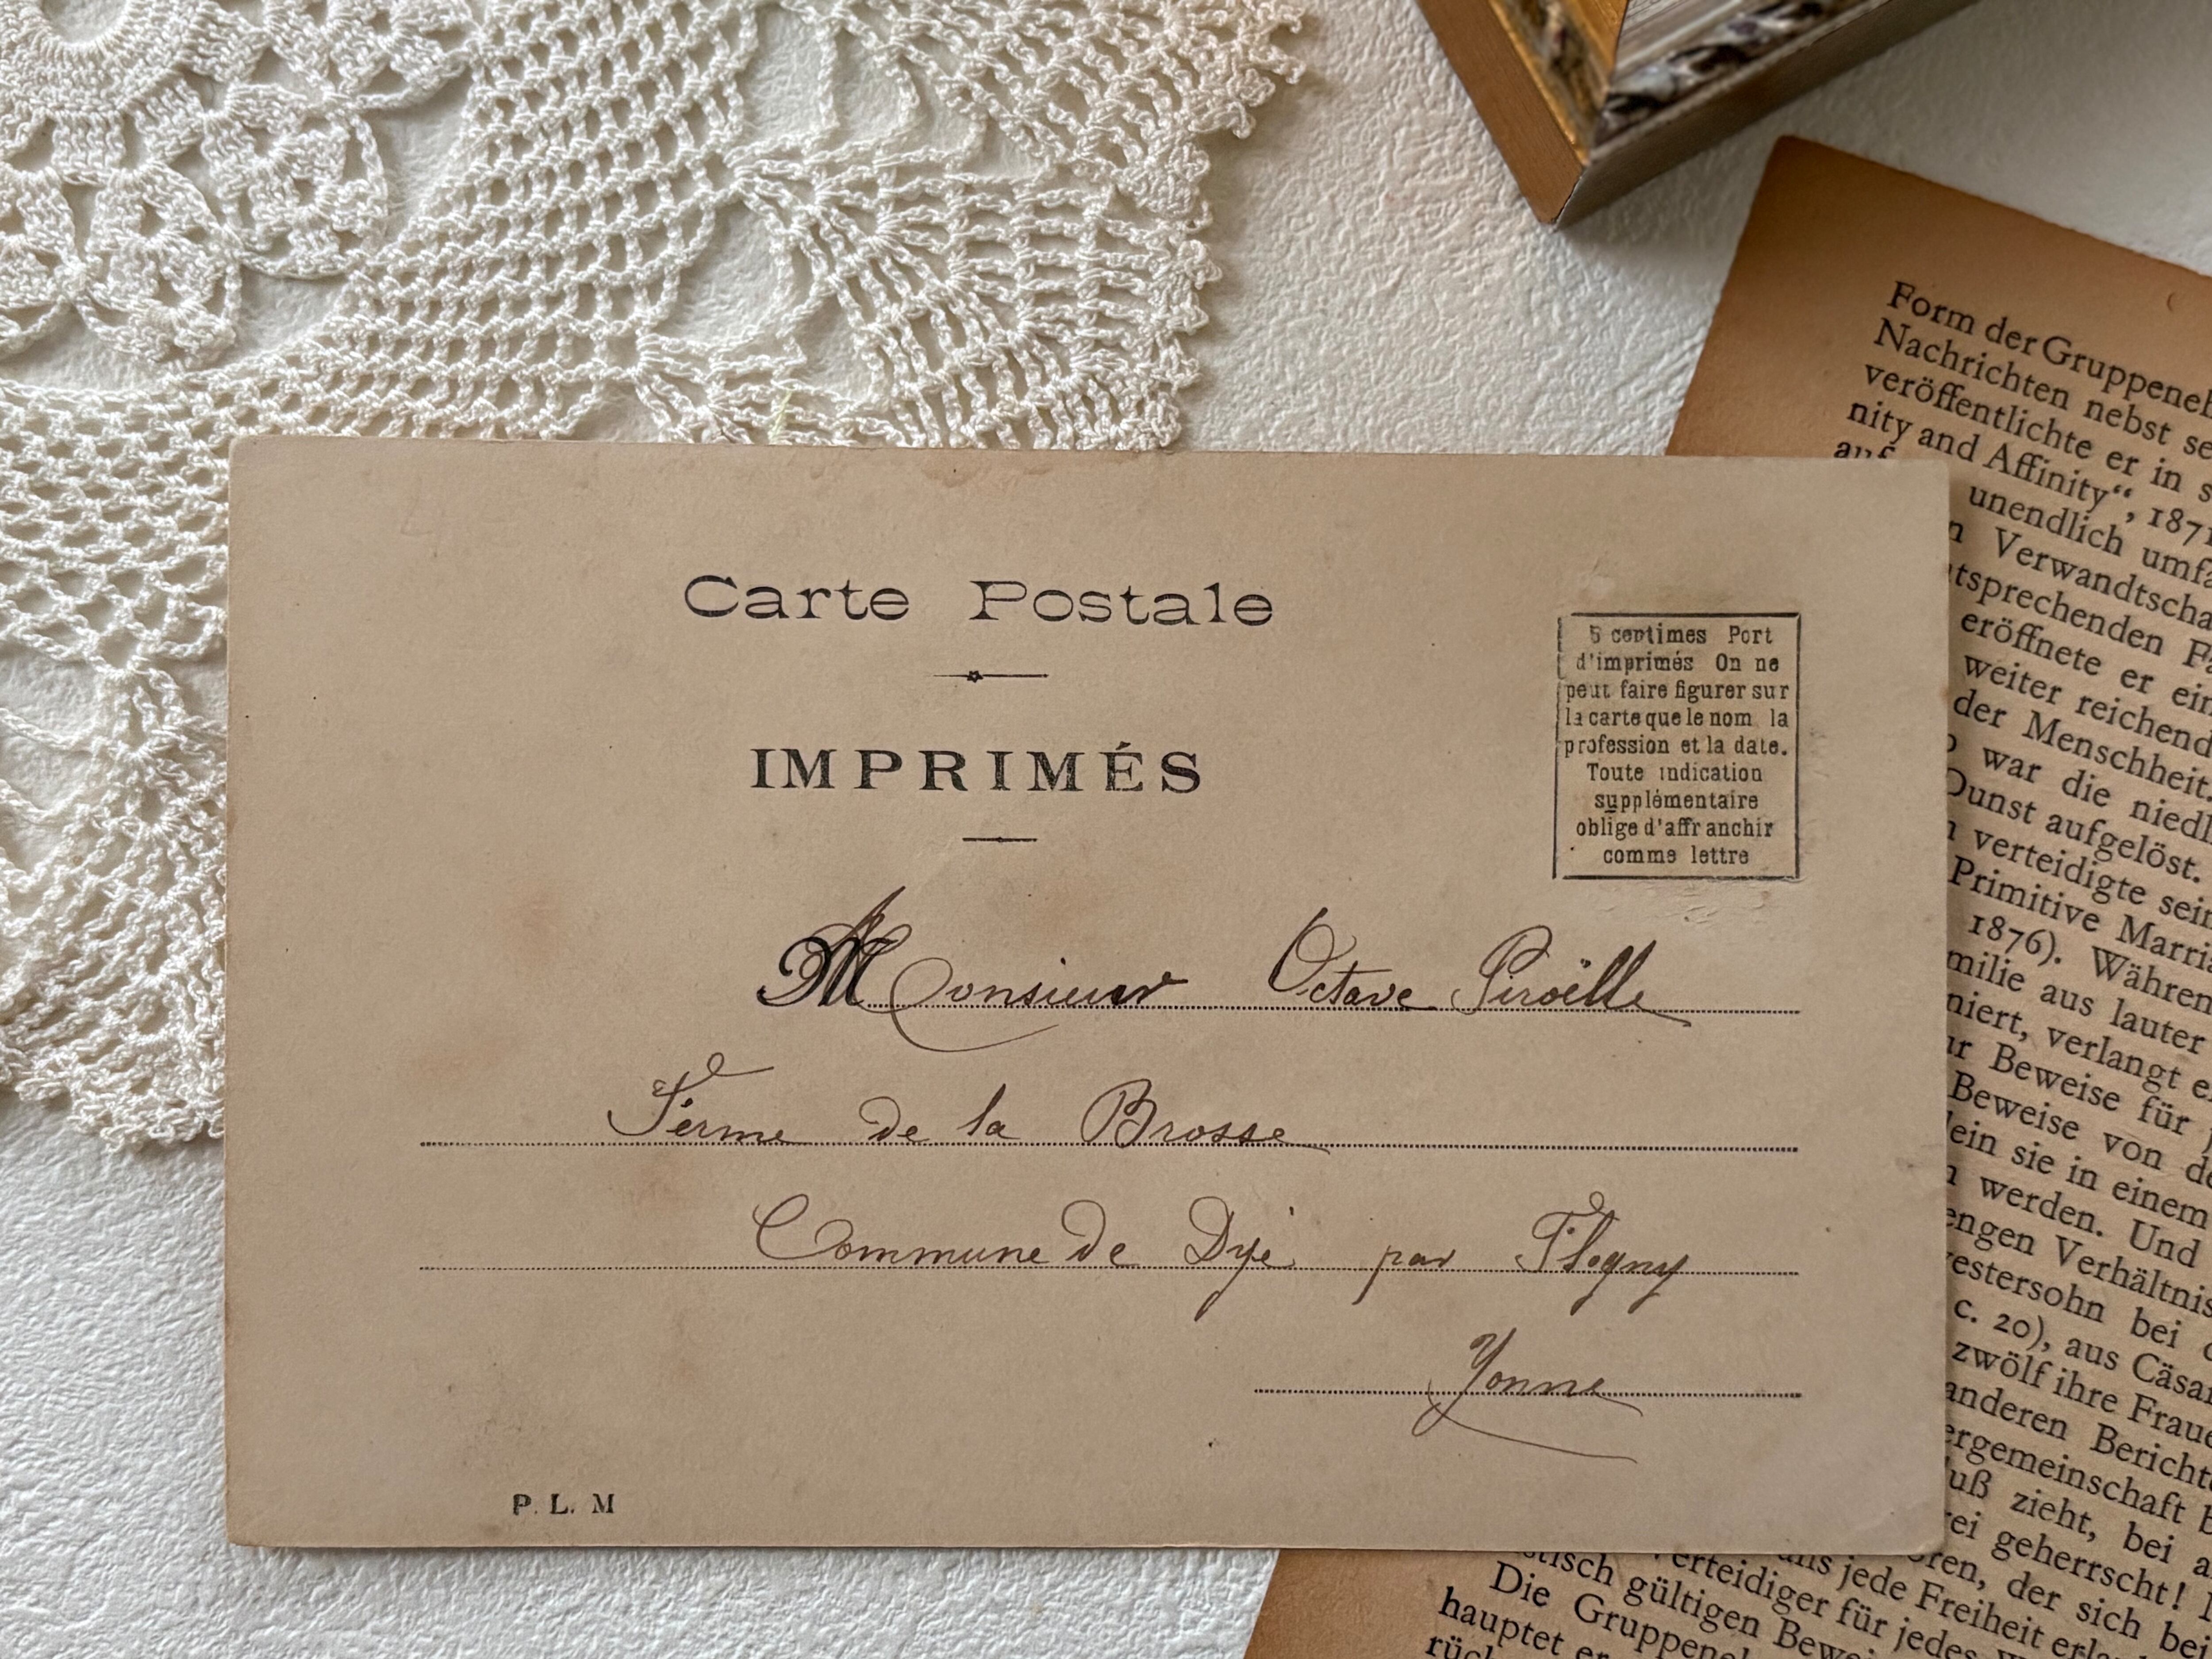 Carte Postale
IMPRIMÉS
5 centimes Port
d'imprimés On ne
peut faire figurer sur
la carte que le nom la
profession et la date.
Toute indication
supplémentaire
oblige d'affranchir
comme lettre
Monsieur Octave Piroëlle
Ferme de la Brosse
Commune de Dyé par Flogny
Yonne
P. L. M
Form der Gruppeneh
Nachrichten nebst se
veröffentlichte er in s
nity and Affinity“, 1871
auf
unendlich umfa
n Verwandtscha
tsprechenden Fa
eröffnete er ein
weiter reichend
der Menschheit.
war die niedl
Dunst aufgelöst.
verteidigte sein
Primitive Marria
1876). Währen
milie aus lauter
niert, verlangt e
ur Beweise für
Beweise von de
ein sie in einem
werden. Und
engen Verhältnis
vestersohn bei
c. 20), aus Cäsar
zwölf ihre Fraue
anderen Berichte
ergemeinschaft b
uß zieht, bei a
ei geherrscht!
oren, der sich bei
erteidiger für jedes
stisch gültigen Bewei
jede Freiheit erla
Die Gruppeneh
hauptet er
rück